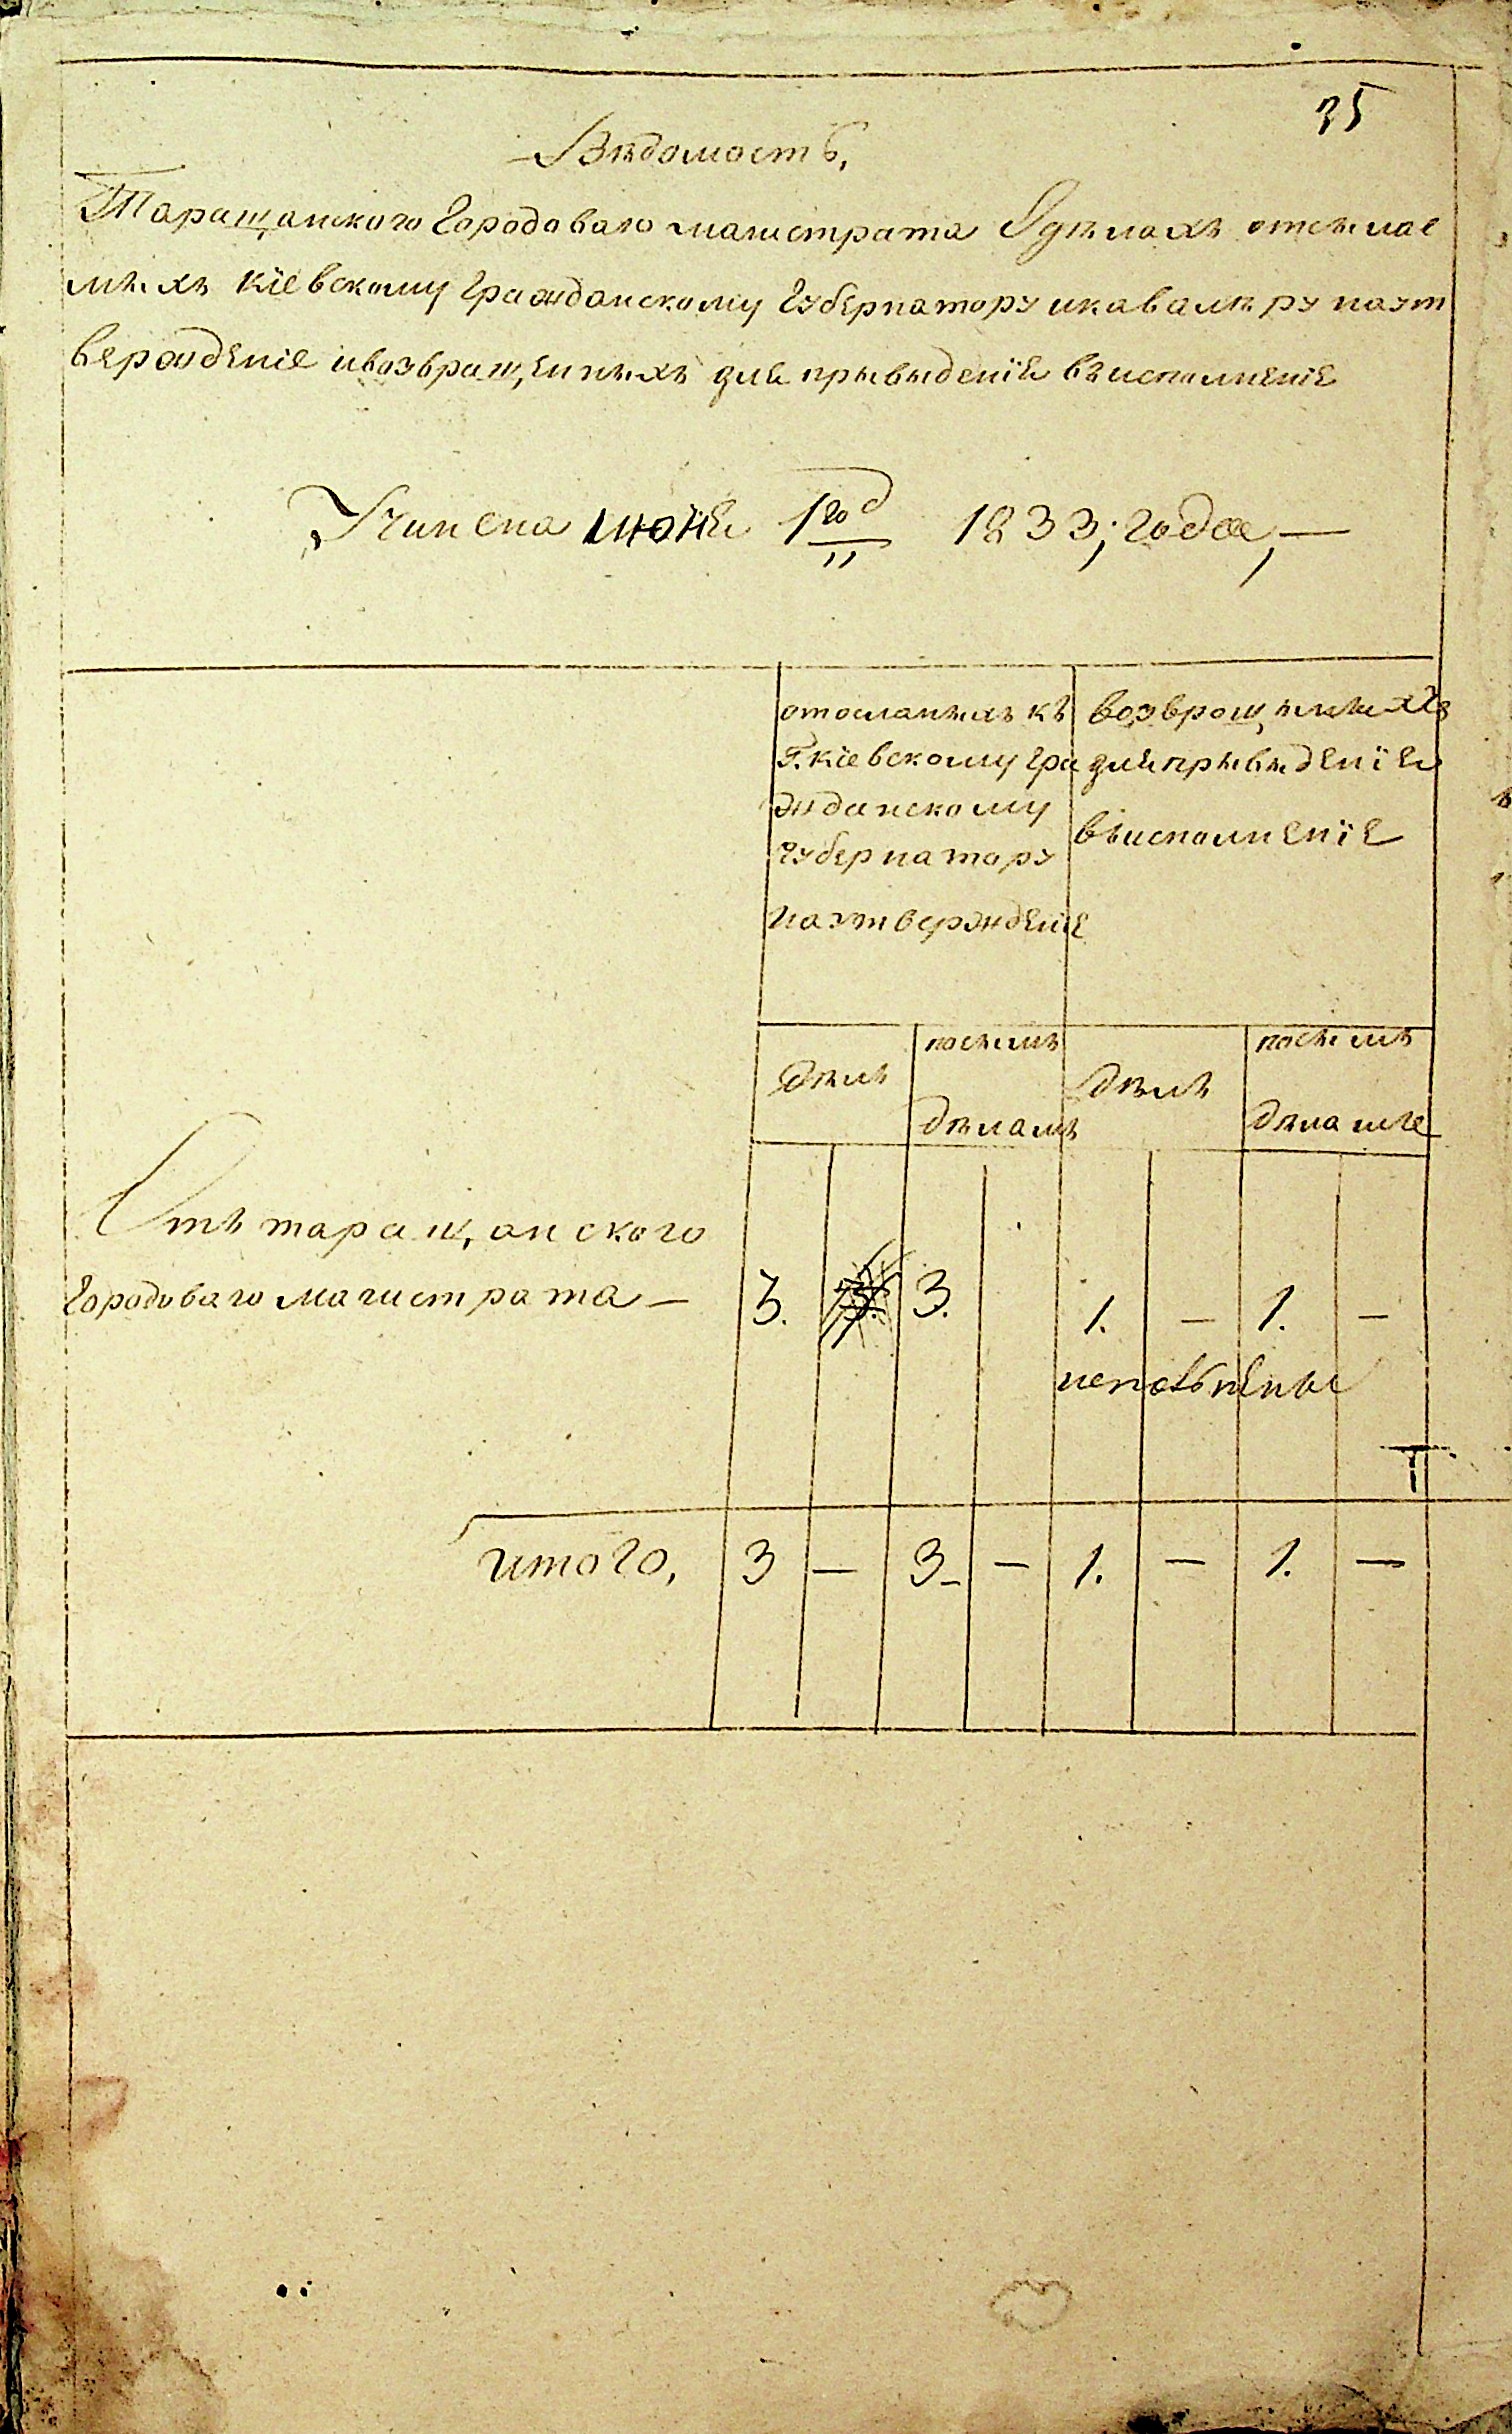 35
Вѣдомость,
Таращанского Городоваго магистрата Одѣлахъ отсылае
мыхъ кіевскому гражданскому губернатору икавалѣру наут
верждѣніе ивозвращенныхъ для прывыденія въисполнѣніе
Учинена июня 1го д 1833; года, —
отосланыхъ къ
Г. кіевскому гра
жданскому
губернатору
наутверждѣніе
возвращѣныхъ
для прывыдѣнія
въисполнѣніе
дѣлъ
посымъ
дѣламъ
дѣлъ
посымъ
дѣламъ
Отъ таращанского
городоваго магистрата — 3. 3. 1. — 1. —
итого, 3 — 3 — 1. — 1. —